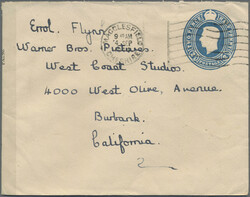 Errol. Flynn
Warner Bros. Pictures.
West Coast Studios.
4000 West Olive, Avenue.
Burbank.
California.